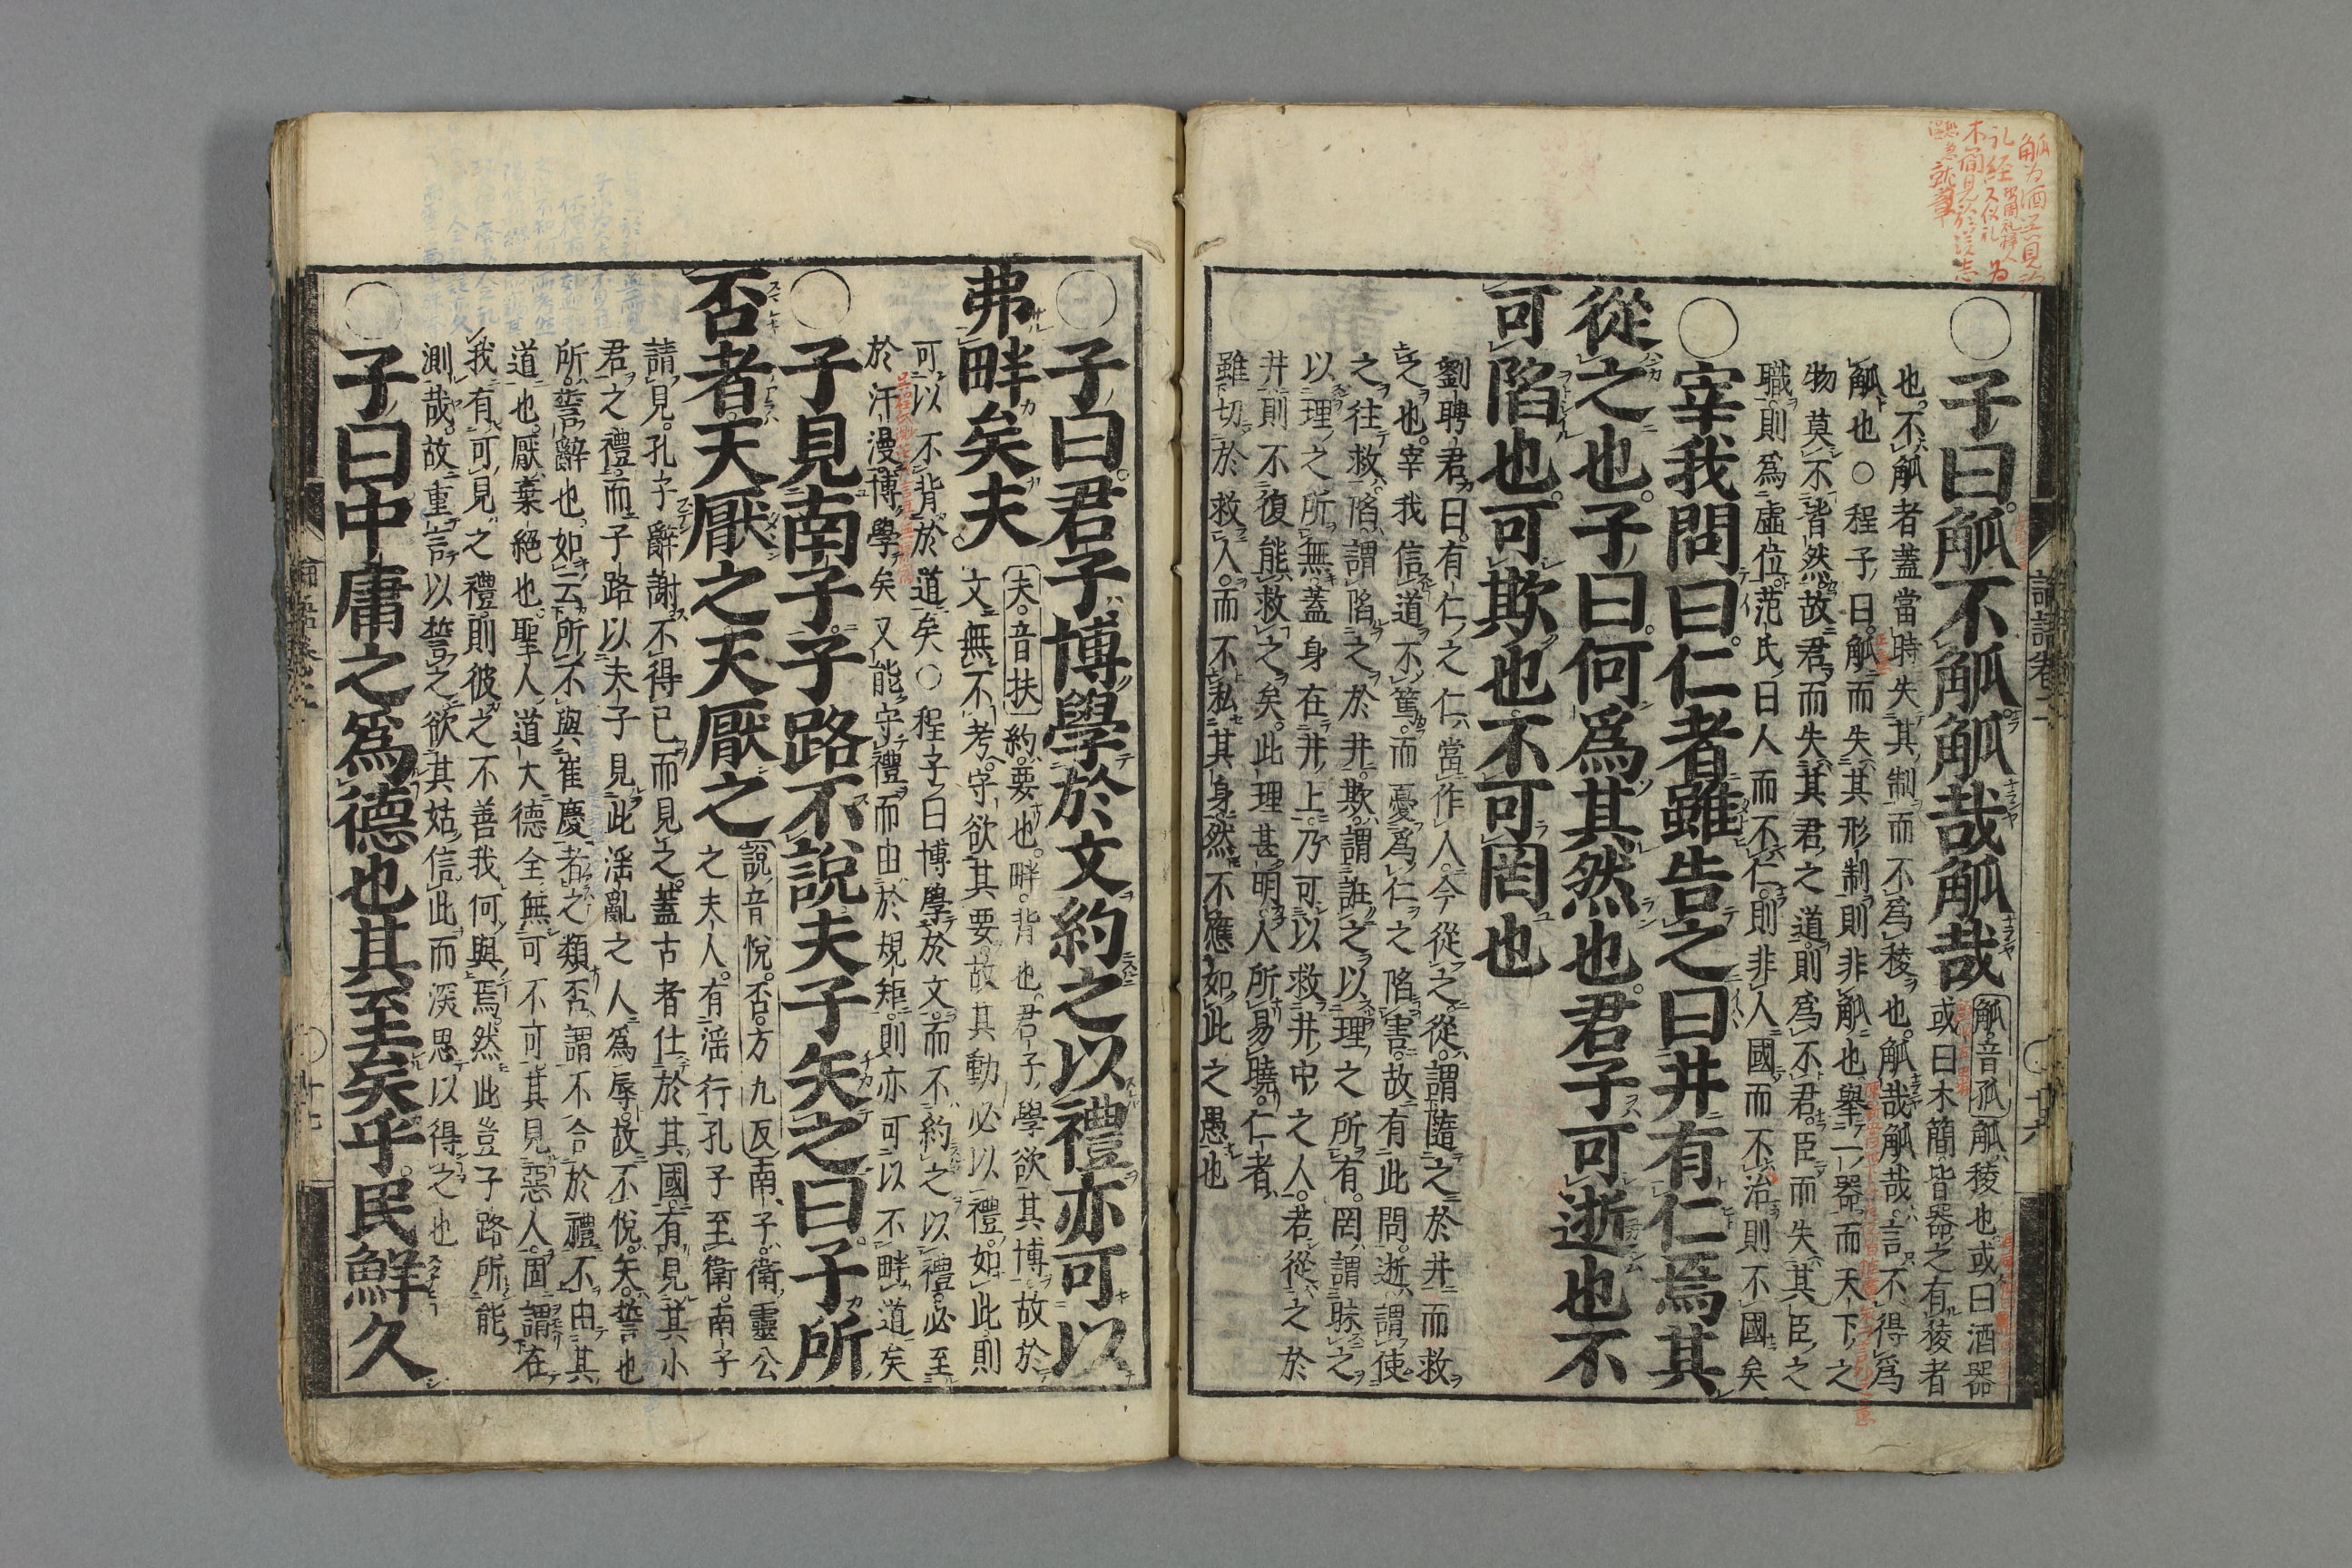 觚為酒器見於
木簡見於漢志
論語卷二
〇子曰觚不觚觚哉觚哉
觚音孤觚稜也或曰酒器
或曰木簡皆器之有稜者
也不觚者蓋當時失其制而不爲稜也觚哉觚哉言不得爲
觚也○程子曰觚而失其形制則非觚也舉一器而天下之
物莫不皆然故君而失其君之道則爲不君臣而失其臣之
職則爲虛位范氏曰人而不仁則非人國而不治則不國矣
〇宰我問曰仁者雖告之曰井有仁焉其
從之也子曰何爲其然也君子可逝也不
可陷也可欺也不可罔也
劉聘君曰有仁之仁當作人今從之從謂隨之於井而救
之也宰我信道不篤而憂爲仁之陷害故有此問逝謂使
之往救陷謂陷之於井欺謂誑之以理之所有罔謂昧之
以理之所無蓋身在井上乃可以救井中之人若從之於
井則不復能救之矣此理甚明人所易曉仁者
雖切於救人而不私其身然不應如此之愚也
〇子曰君子博學於文約之以禮亦可以
弗畔矣夫
夫音扶約要也畔背也君子學欲其博故於
文無不考守欲其要故其動必以禮如此則
可以不背於道矣○程子曰博學於文而不約之以禮必至
於汗漫博學矣又能守禮而由於規矩則亦可以不畔道矣
〇子見南子子路不說夫子矢之曰子所
否者天厭之天厭之
說音悅否方九反南子衛靈公
之夫人有淫行孔子至衛南子
請見孔子辭謝不得已而見之蓋古者仕於其國有見其小
君之禮而子路以夫子見此淫亂之人爲辱故不悅矢誓也
所誓辭也如云所不與崔慶者之類否謂不合於禮不由其
道也厭棄絕也聖人道大德全無可不可其見惡人固謂在
我有可見之禮則彼之不善我何與焉然此豈子路所能
測哉故重言以誓之欲其姑信此而深思以得之也
〇子曰中庸之爲德也其至矣乎民鮮久